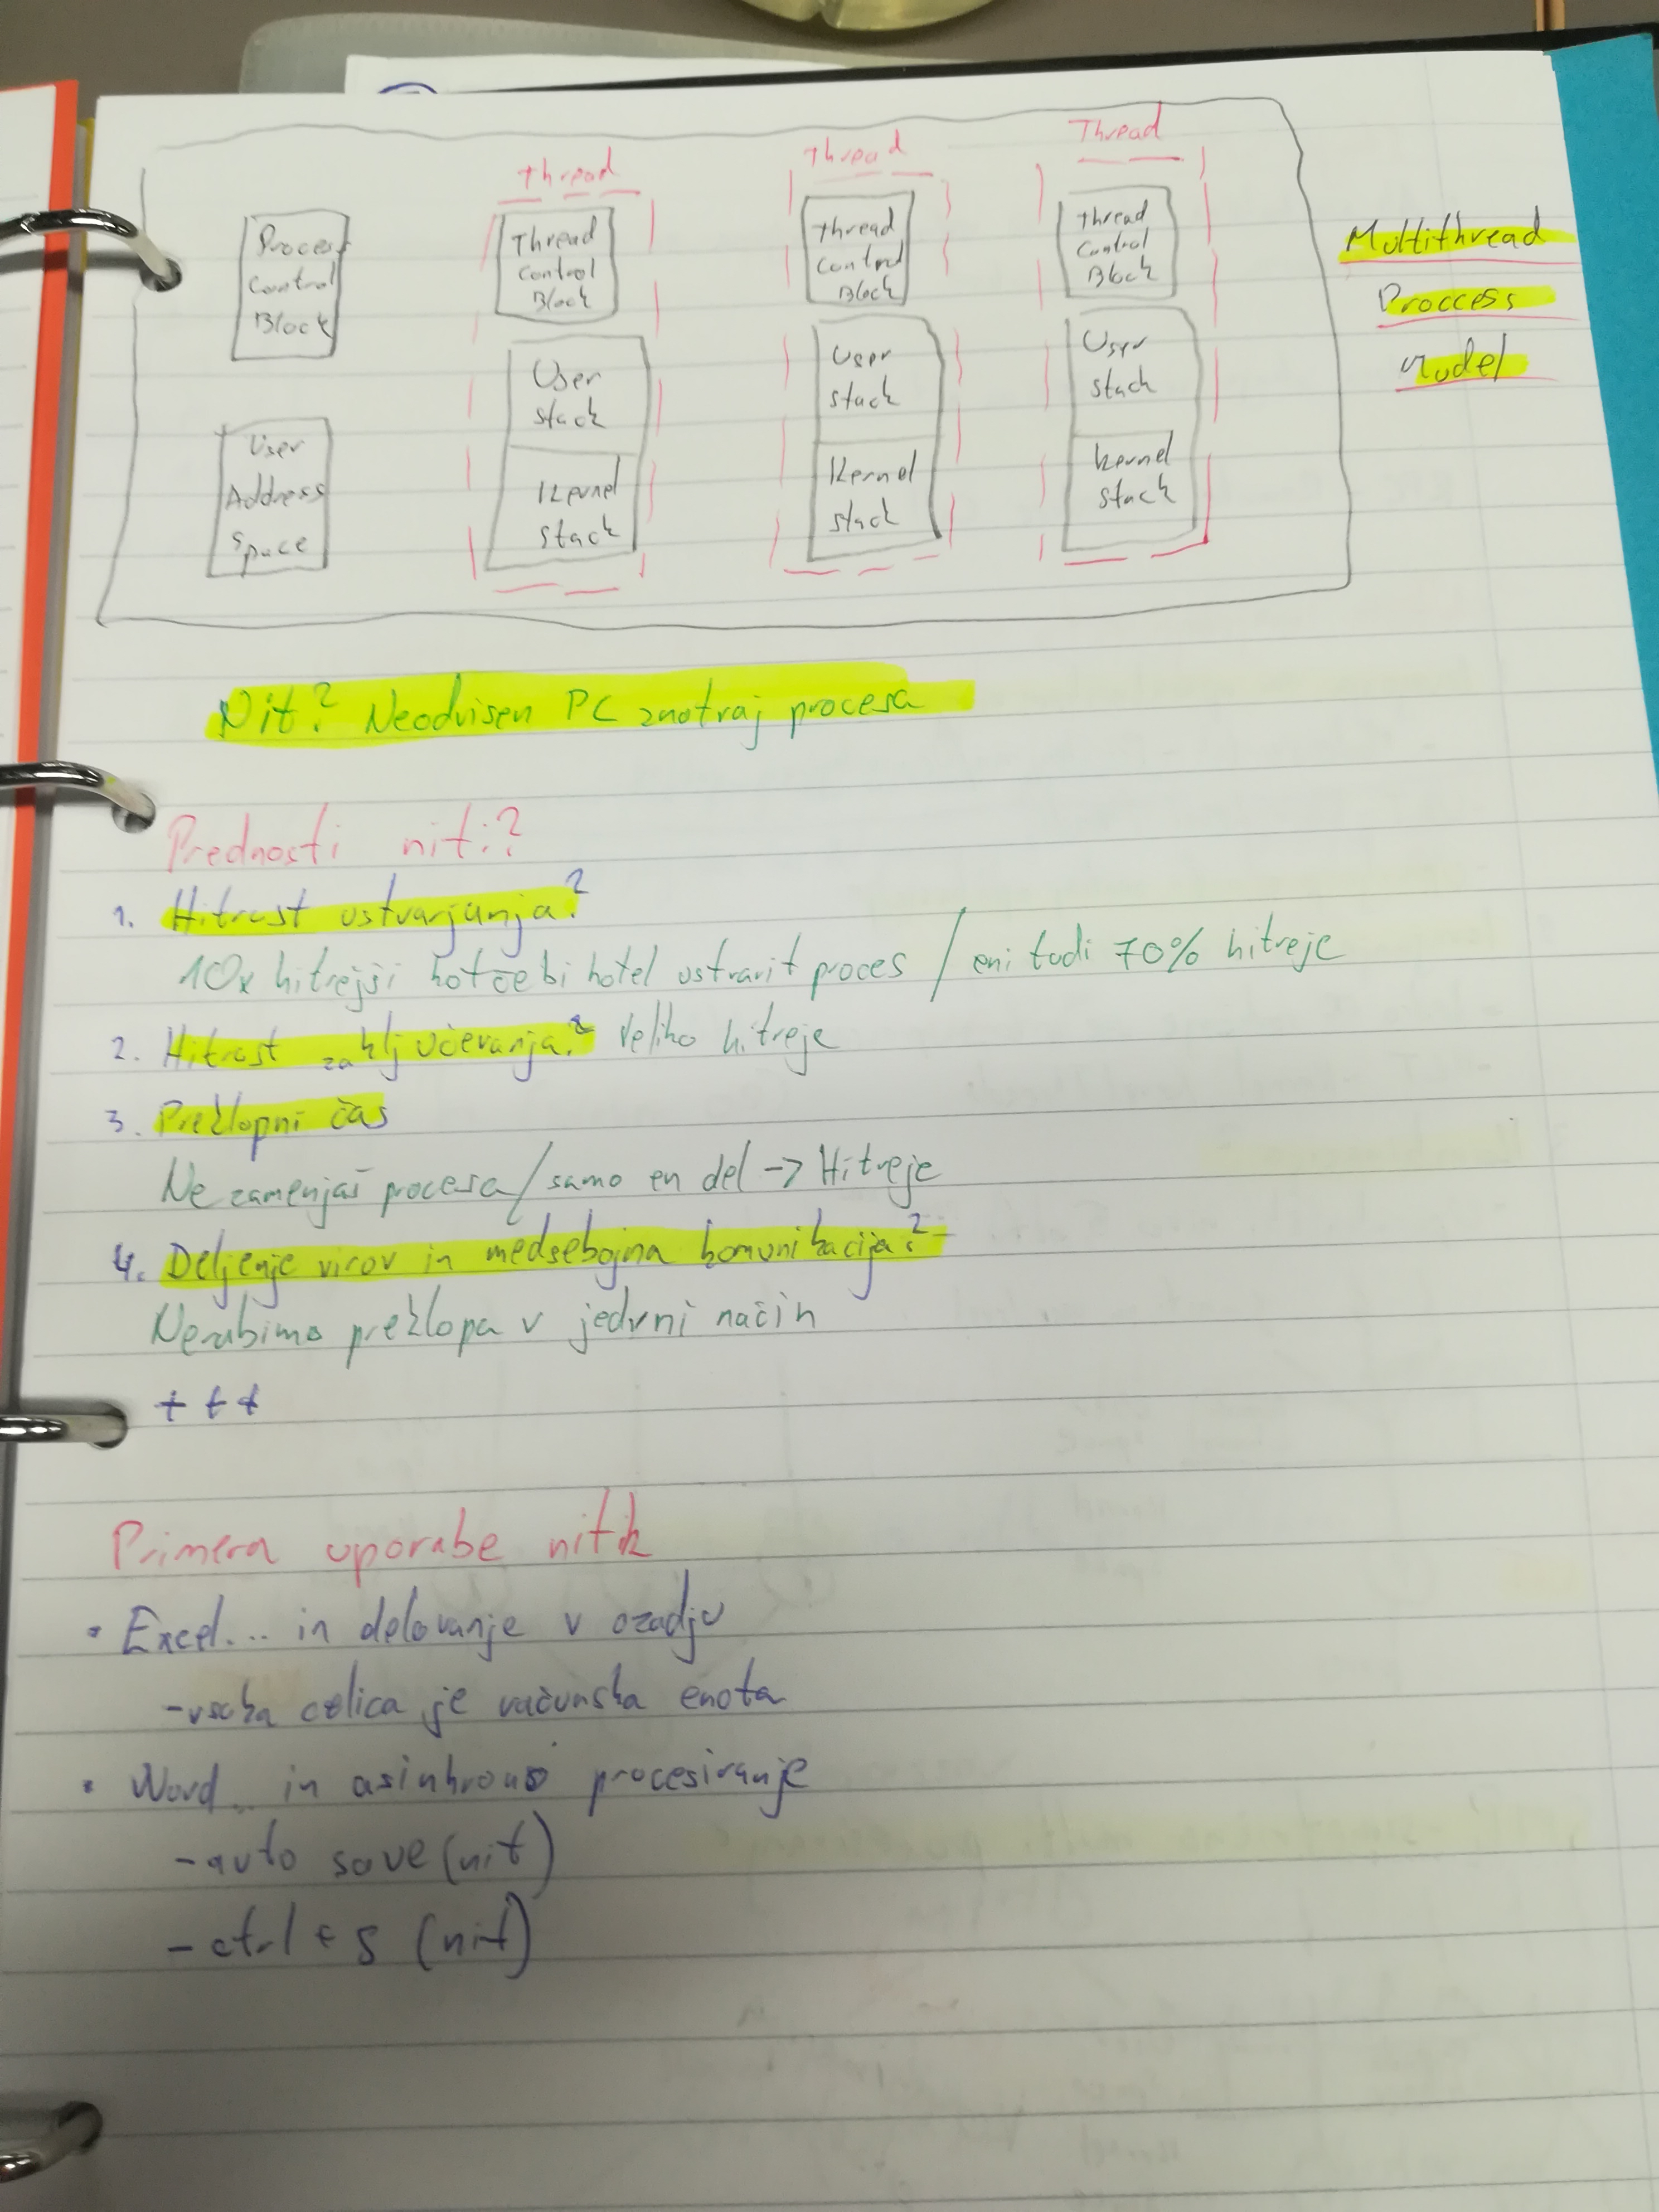 Thread
Thread
Thread
Process
Control
Block
Thread
Control
Block
Thread
Control
Block
Thread
Control
Block
User
Address
Space
User
stack
Kernel
stack
User
stack
Kernel
stack
User
stack
Kernel
stack
Multithread
Proccess
Model
Nit? Neodvisen PC znotraj procesa
Prednosti niti?
1. Hitrost ustvarjanja?
10x hitrejši kot če bi hotel ustvarit proces / eni tudi 70% hitreje
2. Hitrost zaključevanja? Veliko hitreje
3. Preklopni čas
Ne zamenjaš procesa/samo en del -> Hitreje
4. Deljenje virov in medsebojna komunikacija?
Nerabimo preklopa v jedrni način
+++
Primera uporabe nitk
• Excel... in delovanje v ozadju
- vsaka celica je računska enota
• Word... in asinhrono procesiranje
- auto save (nit)
- ctrl + s (nit)